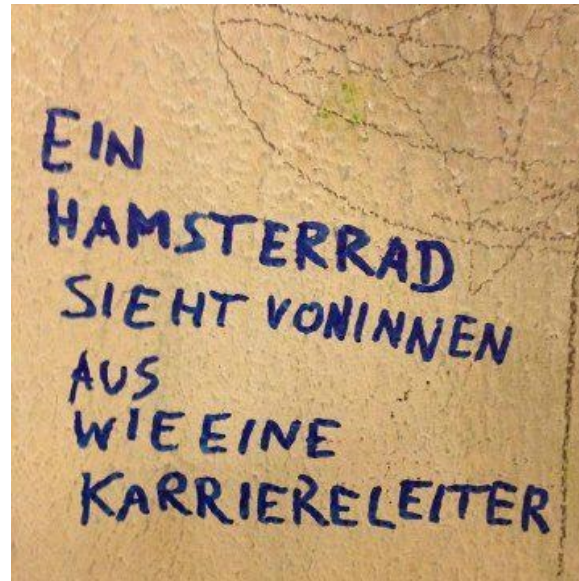 EIN
HAMSTERRAD
SIEHT VON INNEN
AUS
WIE EINE
KARRIERELEITER